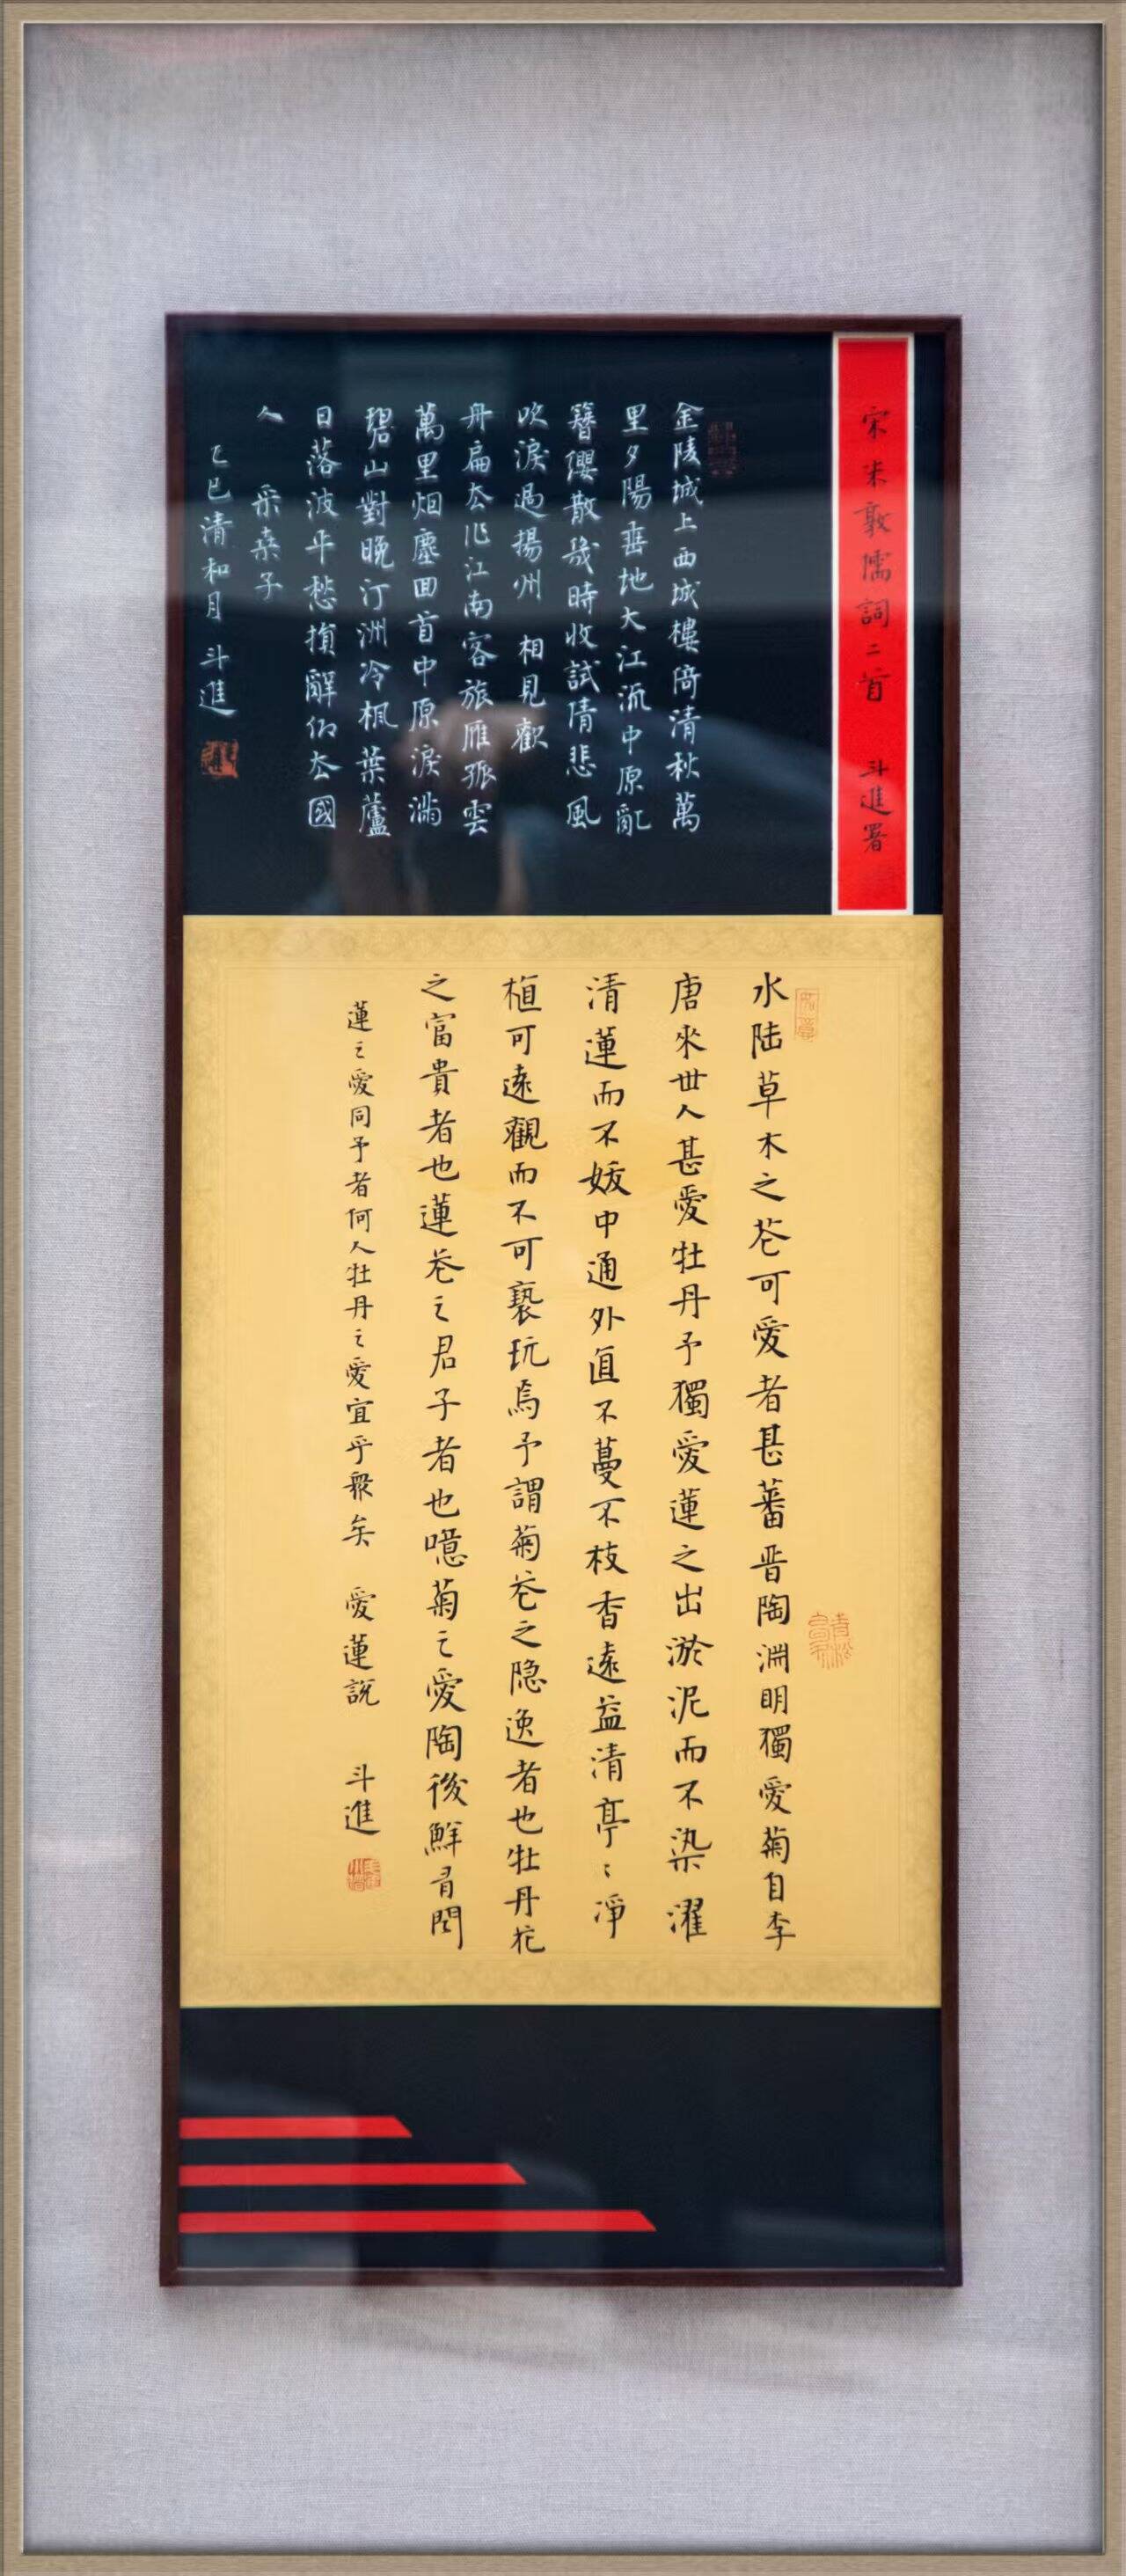 宋朱敦儒詞二首 斗進署
金陵城上西城樓倚清秋萬
里夕陽垂地大江流中原亂
簪纓散幾時收試倩悲風
吹淚過揚州 相見歡
舟扁去作江南客旅雁孤雲
萬里烟塵回首中原淚滿
碧山對晚汀洲冷楓葉蘆
日落波平愁損辭鄉去國
人 采桑子
乙巳清和月 斗進
水陆草木之花可愛者甚蕃晋陶淵明獨愛菊自李
唐來世人甚愛牡丹予獨愛蓮之出淤泥而不染濯
清蓮而不妖中通外直不蔓不枝香遠益清亭〻淨
植可遠觀而不可褻玩焉予謂菊花之隐逸者也牡丹花
之富貴者也蓮花之君子者也噫菊之愛陶後鮮有聞
蓮之愛同予者何人牡丹之愛宜乎眾矣 愛蓮說 斗進